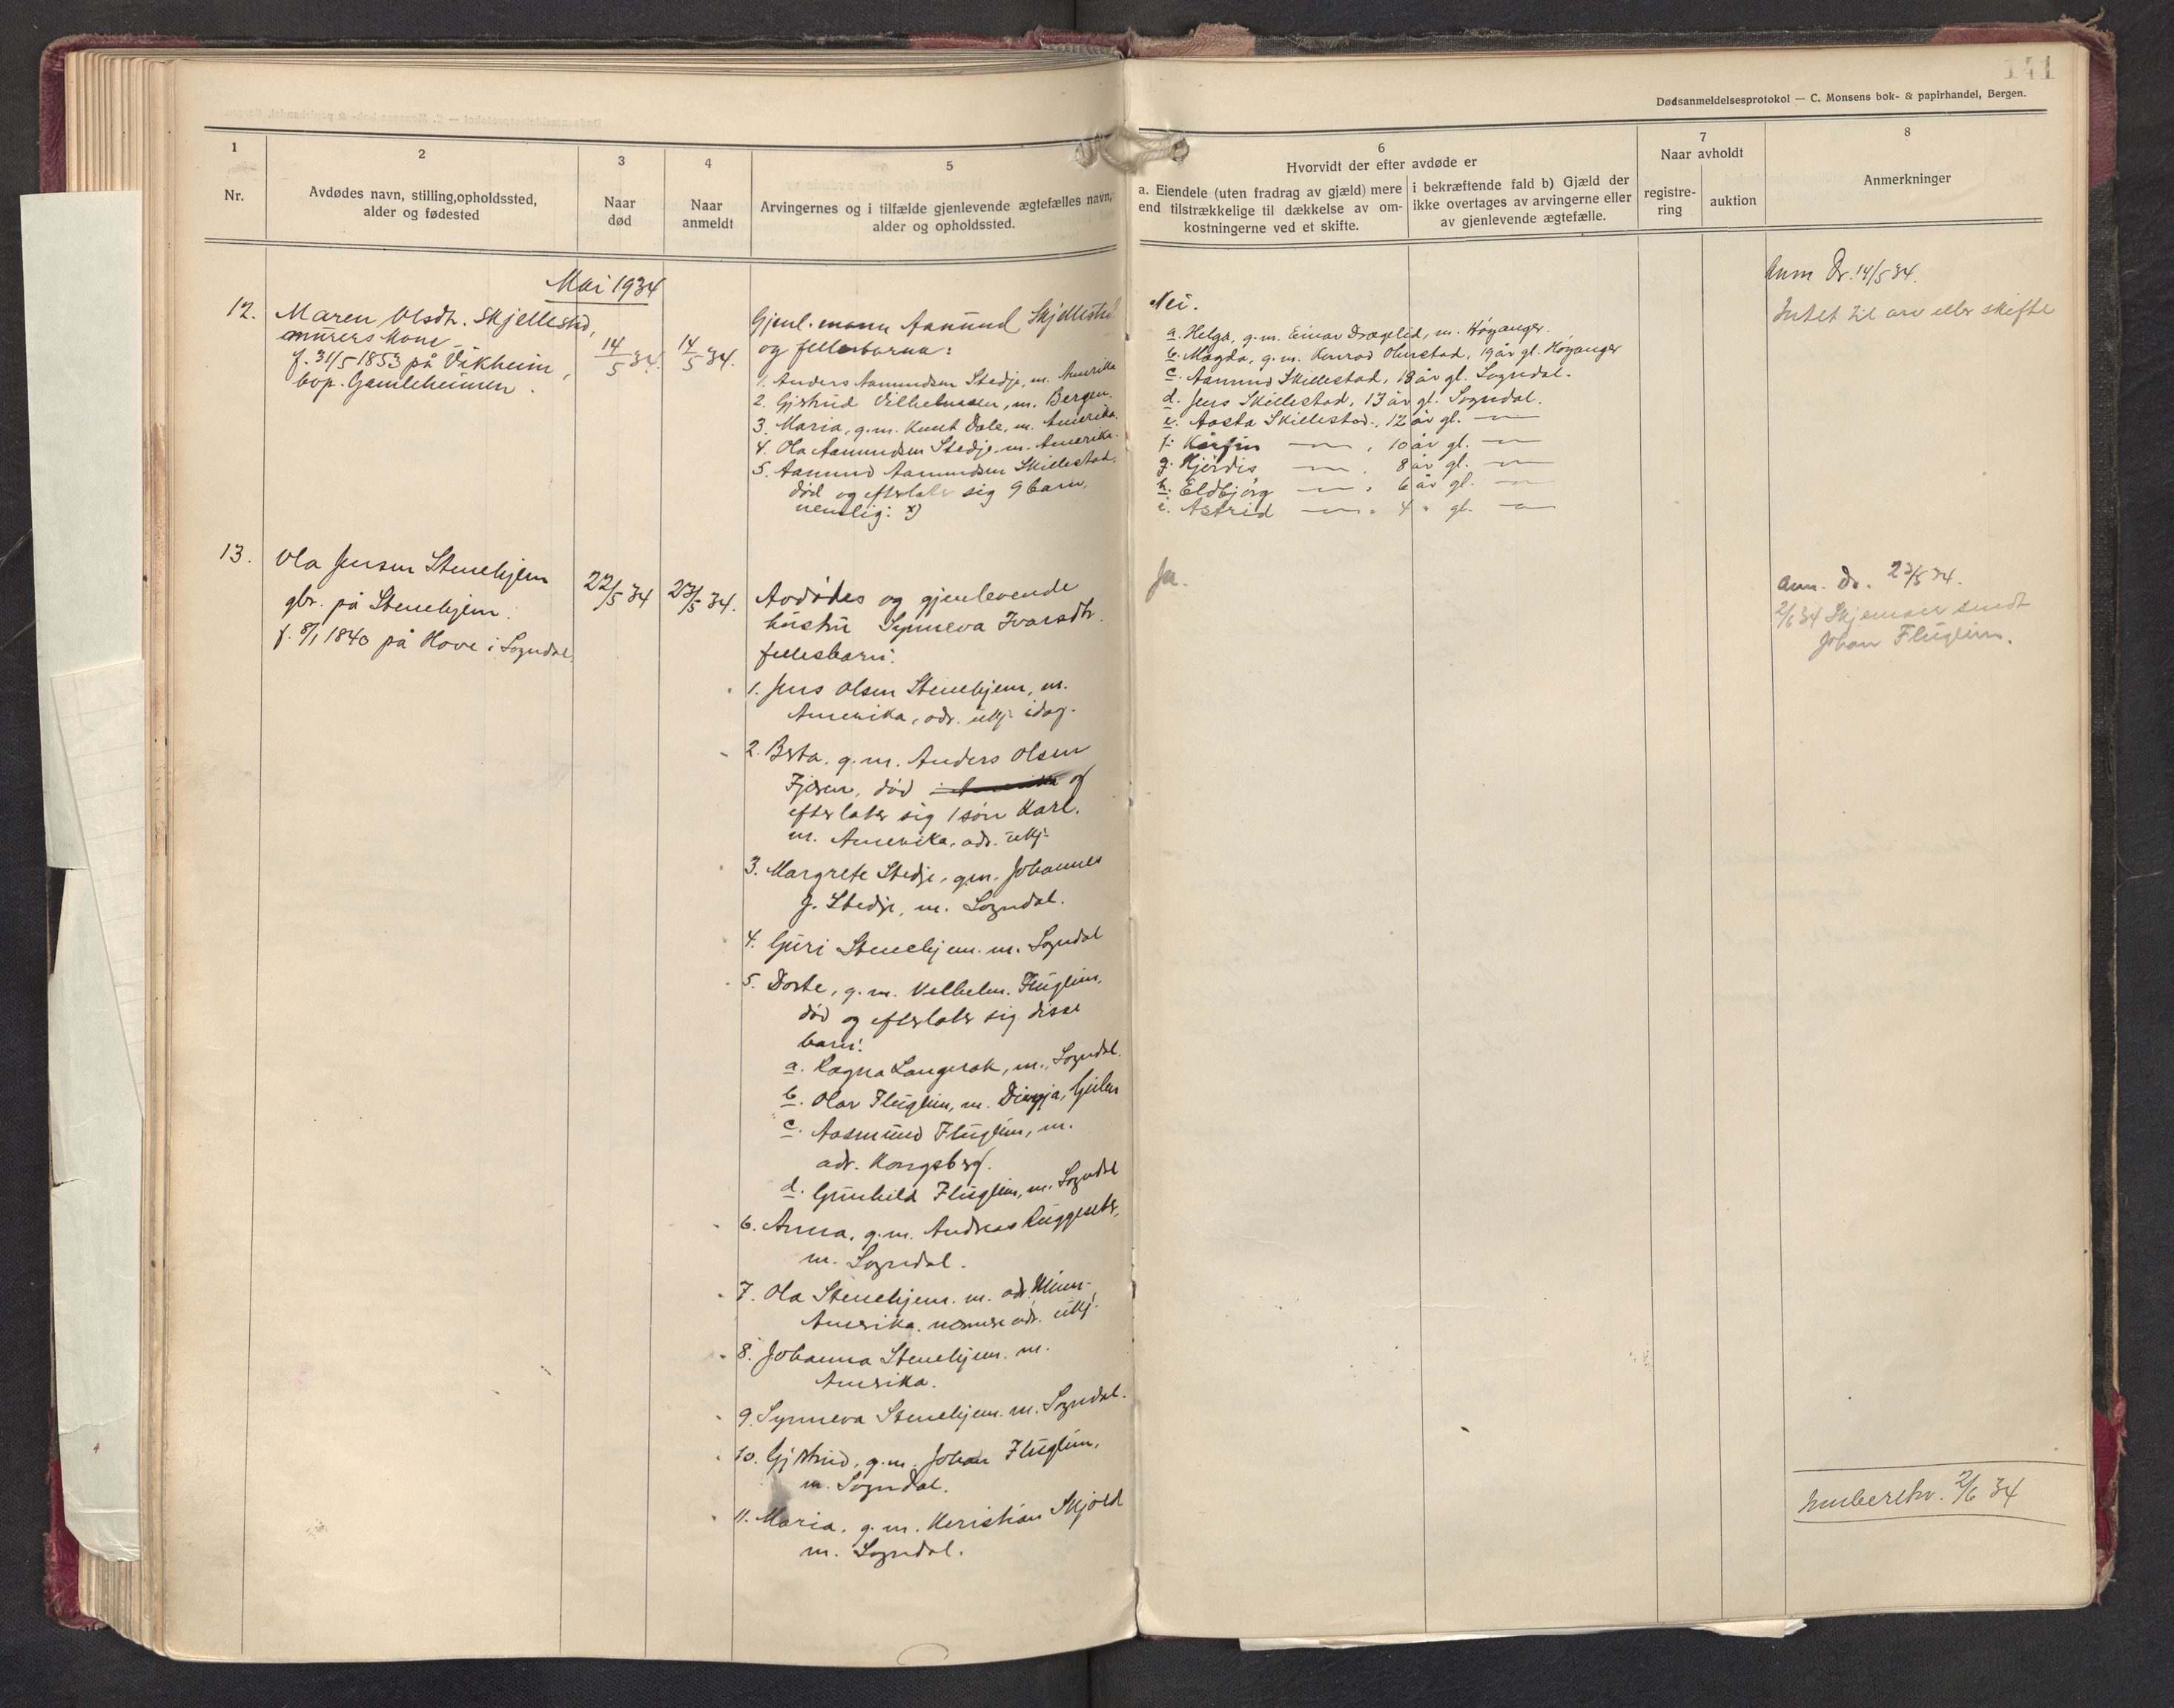 141
Dødsanmeldelsesprotokol — C. Monsens bok- & papirhandel, Bergen.
1
Nr.
2
Avdødes navn, stilling, opholdssted,
alder og fødested
3
Naar
død
4
Naar
anmeldt
5
Arvingernes og i tilfælde gjenlevende ægtefælles navn,
alder og opholdssted.
6
Hvorvidt der efter avdøde er
a. Eiendele (uten fradrag av gjæld) mere
end tilstrækkelige til dækkelse av om-
kostningerne ved et skifte.
i bekræftende fald b) Gjæld der
ikke overtages av arvingerne eller
av gjenlevende ægtefælle.
7
Naar avholdt
registre-
ring
auktion
8
Anmerkninger
Mai 1934
12.
Maren Olsdtr. Skjellestad,
murers kone
f. 31/5 1853 på Vikheim,
bop. Gamleheimen.
14/5 34.
14/5 34.
Gjenl. mann Aamund Skjellestad
og fellesbarna:
1. Anders Aamundsen Stedje, m. Amerika
2. Gjertrud Vilhelmsen, m. Bergen.
3. Maria, g.m. Knut Dale, m. Amerika.
4. Ola Aamundsen Stedje, m. Amerika.
5. Aamund Aamundsen Skillestad,
død og efterlater sig 9 barn,
nemlig: x)
Nei.
a. Helga, g.m. Einar Dragelid, m. Høyanger.
b. Magda, g.m. Konrad Ohnstad, 19 år gl. Høyanger
c. Aamund Skillestad, 18 år gl. Sogndal.
d. Jens Skillestad, 13 år gl. Sogndal.
e. Aasta Skillestad, 12 år gl. —"—
f. Kårfin —"—, 10 år gl. —"—
g. Hjördis —"—, 8 år gl. —"—
h. Eldbjörg —"—, 6 år gl. —"—
i. Astrid —"—, 4 " gl. —"—
Anm Dr. 14/5 34.
Intet til arv eller skifte
13.
Ola Jensen Stenehjem
gbr. på Stenehjem.
f. 8/1 1840 på Hove i Sogndal.
22/5 34
23/5 34.
Avdødes og gjenlevende
hustru Synneva Ivarsdtr.
fellesbarn:
1. Jens Olsen Stenehjem, m.
Amerika, adr. ukj. idag.
2. Brta. g.m. Anders Olsen
Fjæren, død i Amerika og
efterlater sig 1 sön Karl.
m. Amerika, adr. ukj.
3. Margrete Stedje, g.m. Johannes
J. Stedje, m. Sogndal.
4. Guri Stenehjem. m. Sogndal
5. Dorte, g.m. Vilhelm. Flugheim,
død og efterlater sig disse
barn:
a. Ragna Langerak, m. Sogndal.
b. Olav Flugheim, m.
c. Aasmund Flugheim, m.
adr. Kongsberg.
d. Gunhild Flugheim, m. Sogndal
6. Anna, g.m. Andreas Ruggeseter,
m. Sogndal.
7. Ola Stenehjem. m. adr. Minn.
Amerika. nærmere adr. ukj.
8. Johanna Stenehjem. m.
Amerika.
9. Synneva Stenehjem. m. Sogndal.
10. Gjertrud, g.m. Johan Flugheim,
m. Sogndal.
11. Maria, g.m. Kristian Skjold
m. Sogndal.
Ja.
Anm. Dr. 23/5 34.
2/6 34 Skjemaer sendt
Johan Flugheim.
Innberetn. 2/6 34